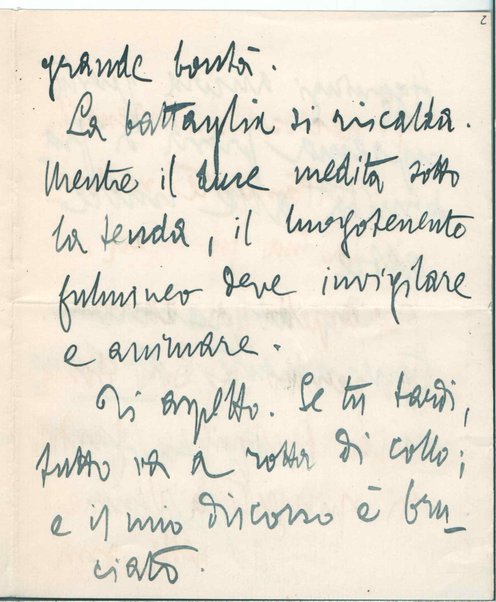 2
grande bontà.
La battaglia si riscalda.
Mentre il duce medita sotto
la tenda, il luogotenente
fulmineo deve invigilare
e animare.
Ti aspetto. Se tu tardi,
tutto va a rotta di collo;
e il mio discorso è bru-
ciato.